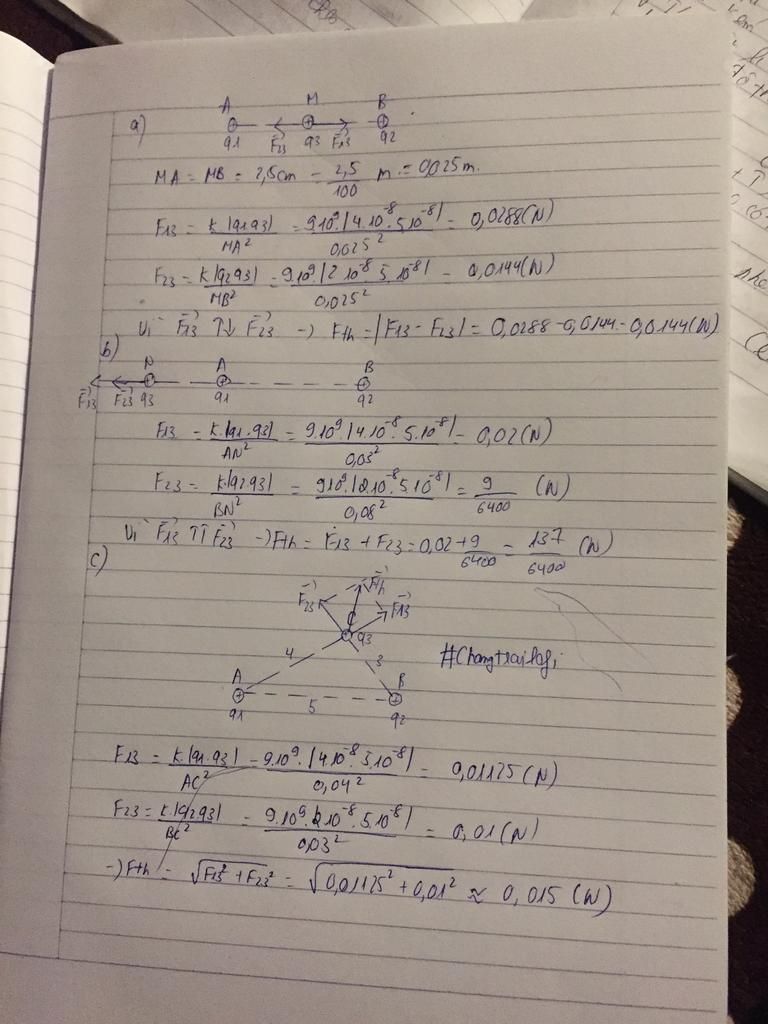 a) A M B
q1 F23 q3 F13 q2
MA = MB = 2,5cm = 2,5/100 m = 0,025m.
F13 = k.|q1q3|/MA² = 9.10⁹.|4.10⁻⁸.5.10⁻⁸|/0,025² = 0,0288(N)
F23 = k|q2q3|/MB² = 9.10⁹|2.10⁻⁸.5.10⁻⁸|/0,025² = 0,0144(N)
Vì F13 ↑↓ F23 → Fth = |F13 - F23| = 0,0288 - 0,0144 = 0,0144(N)
b)
N A B
F13 F23 q3 q1 q2
F13 = k.|q1.q3|/AN² = 9.10⁹.|4.10⁻⁸.5.10⁻⁸|/0,03² = 0,02(N)
F23 = k.|q2q3|/BN² = 9.10⁹.|2.10⁻⁸.5.10⁻⁸|/0,08² = 9/6400 (N)
Vì F13 ↑↑ F23 → Fth = F13 + F23 = 0,02 + 9/6400 = 137/6400 (N)
c)
F23 Fth F13
C q3
4 3 #Changtraileg;
A B
q1 5 q2
F13 = k.|q1.q3|/AC² = 9.10⁹.|4.10⁻⁸.5.10⁻⁸|/0,04² = 0,01125(N)
F23 = k.|q2q3|/BC² = 9.10⁹.|2.10⁻⁸.5.10⁻⁸|/0,03² = 0,01(N)
→ Fth = √F13² + F23² = √0,01125² + 0,01² ≈ 0,015 (N)